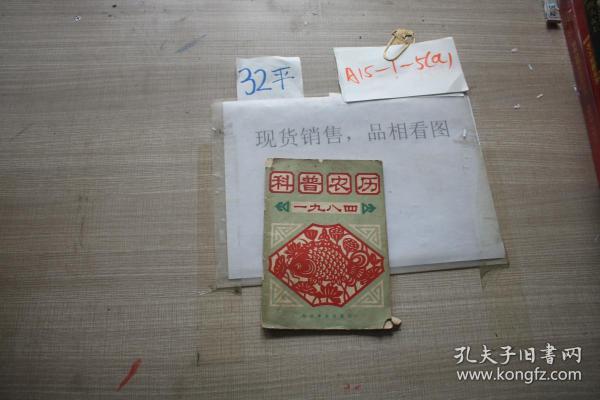 32平
A15-1-5(a)
现货销售，品相看图
科普农历
一九八四
孔夫子旧书网
www.kongfz.com